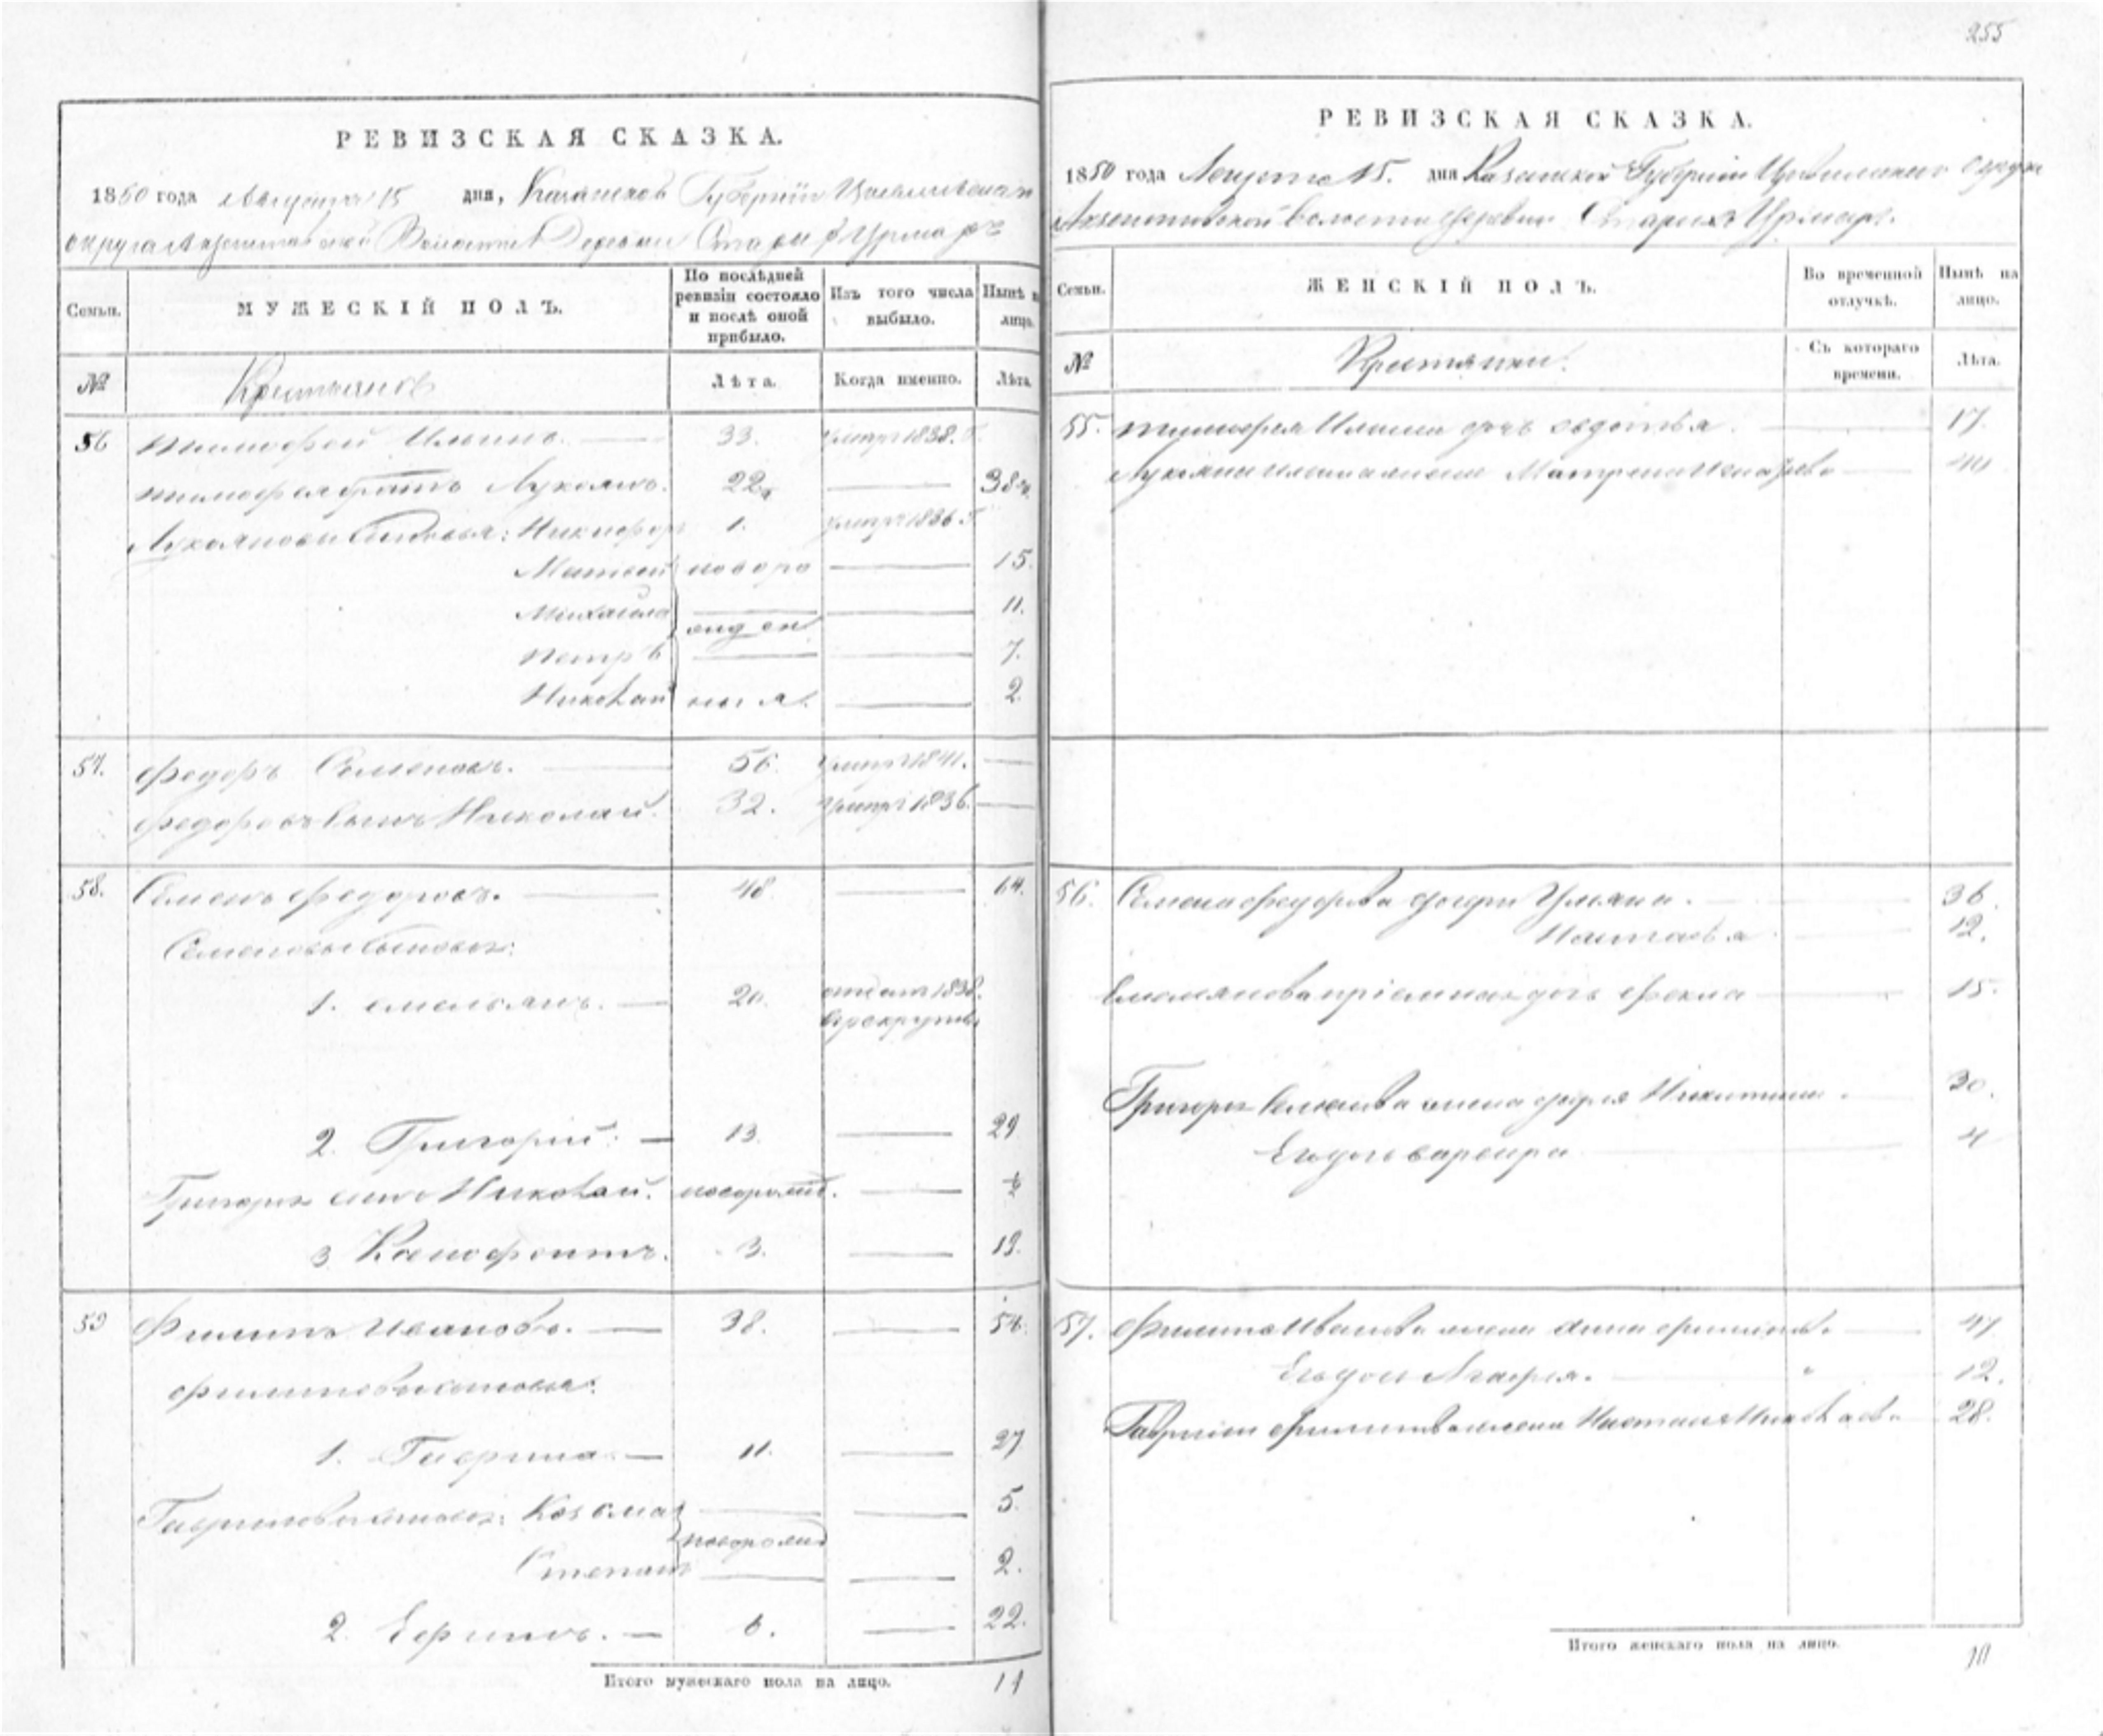 255
РЕВИЗСКАЯ СКАЗКА.
1850 года Августа 15 дня, Казанской Губерніи Цивильскаго
округа Волости Деревни Старыхъ Урмаръ
Семьи.
МУЖЕСКІЙ ПОЛЪ.
По послѣдней ревизіи состояло и послѣ оной прибыло.
Изъ того числа выбыло.
Нынѣ на лицо.
№
Лѣта.
Когда именно.
Лѣта.
56 Тимофей Ильинъ. 33. умеръ 1838 г.
Тимофея братъ Лукоянъ. 22 38
Лукояновы сыновья: Никифоръ 1. умеръ 1836 г.
Матвей новоро 15.
Михаила 11.
жден
Петръ 7.
Николай ныя. 2.
57. Федоръ Семеновъ. 56. умеръ 1841.
Федоровъ сынъ Николай. 32. умеръ 1836.
58. Семенъ Федоровъ. 48 64.
Семеновы сыновья:
1. Емельянъ. 20. отдан 1838.
в рекруты
2. Григорій. 13. 29
Григорья сынъ Николай. новорожд.
3 Ксенофонтъ. 3. 19.
59 Филипъ Ивановъ. 38. 54.
Филиповы сыновья:
1. Гаврила 11. 27
Гавриловы сыновья: Козьма 5.
новорожд
Степанъ 2.
2. Ефимъ. 6. 22.
Итого мужескаго пола на лицо. 14
РЕВИЗСКАЯ СКАЗКА.
1850 года Августа 15. дня Казанской Губерніи Цивильскаго округа
волости деревни Старыхъ Урмаръ.
Семьи.
ЖЕНСКІЙ ПОЛЪ.
Во временной отлучкѣ.
Нынѣ на лицо.
№
Крестянки.
Съ котораго времени.
Лѣта.
55. Тимофея Ильина дочь Евдотья. 17.
Лукояна Ильина жена Матрена 40
56. Семена Федорова дочери Ульяна. 36.
Настасья 12.
Емельянова пріемная дочь Фекла 15.
Григорья Семенова жена Никитина. 30.
Его дочь Варвара 4
57. Филипа Иванова жена Анна 47
Его дочь Агафья. 12.
Гаврилы Филипова жена Настасья Николаева 28.
Итого женскаго пола на лицо. 10